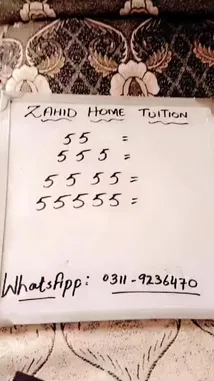 ZAHID HOME TUITION
55 =
555 =
5555 =
55555 =
WhatsApp: 0311-9236470